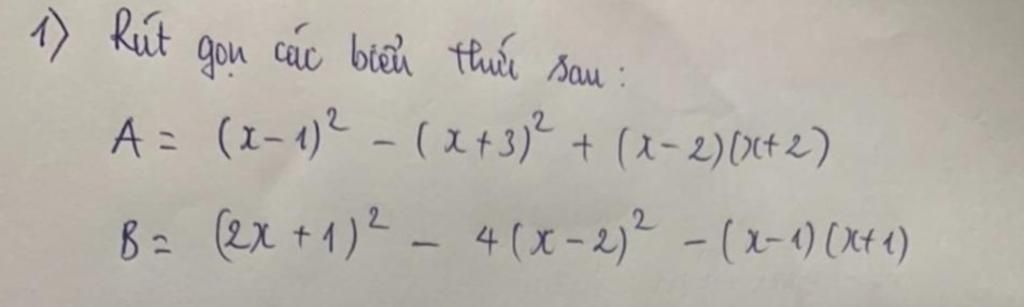 1) Rút gọn các biểu thức sau:
A = (x-1)² - (x+3)² + (x-2)(x+2)
B = (2x+1)² - 4(x-2)² - (x-1)(x+1)